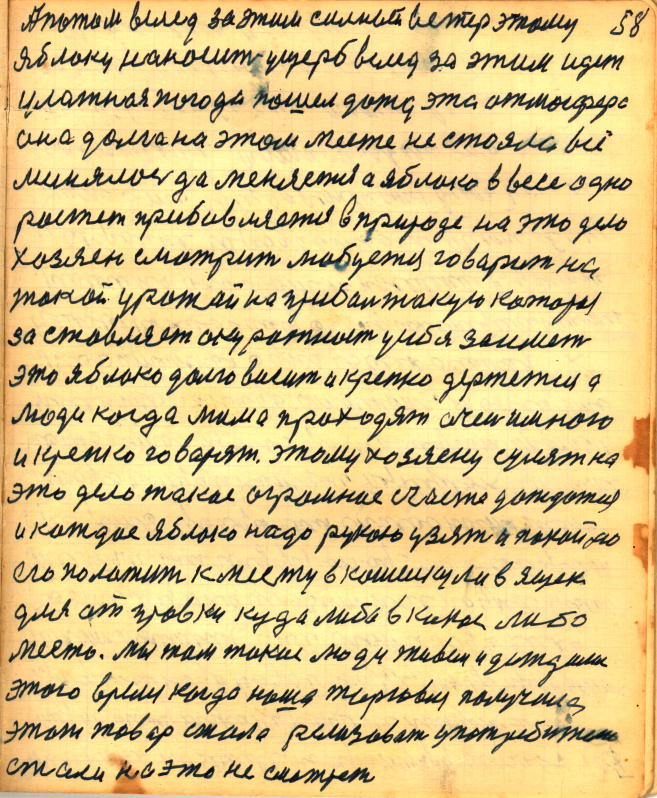 58
А потом вслед за этим силный ветер этому
яблоку наносит ущерб вслед за этим идет
и латная погода пошел дожд эта атмосфера
она долга на этом месте не стояла всё
менялось да меняется а яблоко в весе одно
растет прибавляется в природе на это дело
хозяен смотрит любуется говарит на
такой урожай на прибал такую которы
заставляет акуратност уибя заимет
это яблоко долго висит и крепко держется а
люди когда мима проходят очен много
и крепко говарят. этому хозяену сулят на
это дело такое огромное счастя дождатся
и каждое яблоко надо рукою узят и покойно
его положит к месту в кошелку ли в ящек
для от правки куда либа в какое либо
место. мы там такие люди живем и дождали
этого время когда наша торговля получила
этот товар стала реализоват употребителю
стали на это не смотрет